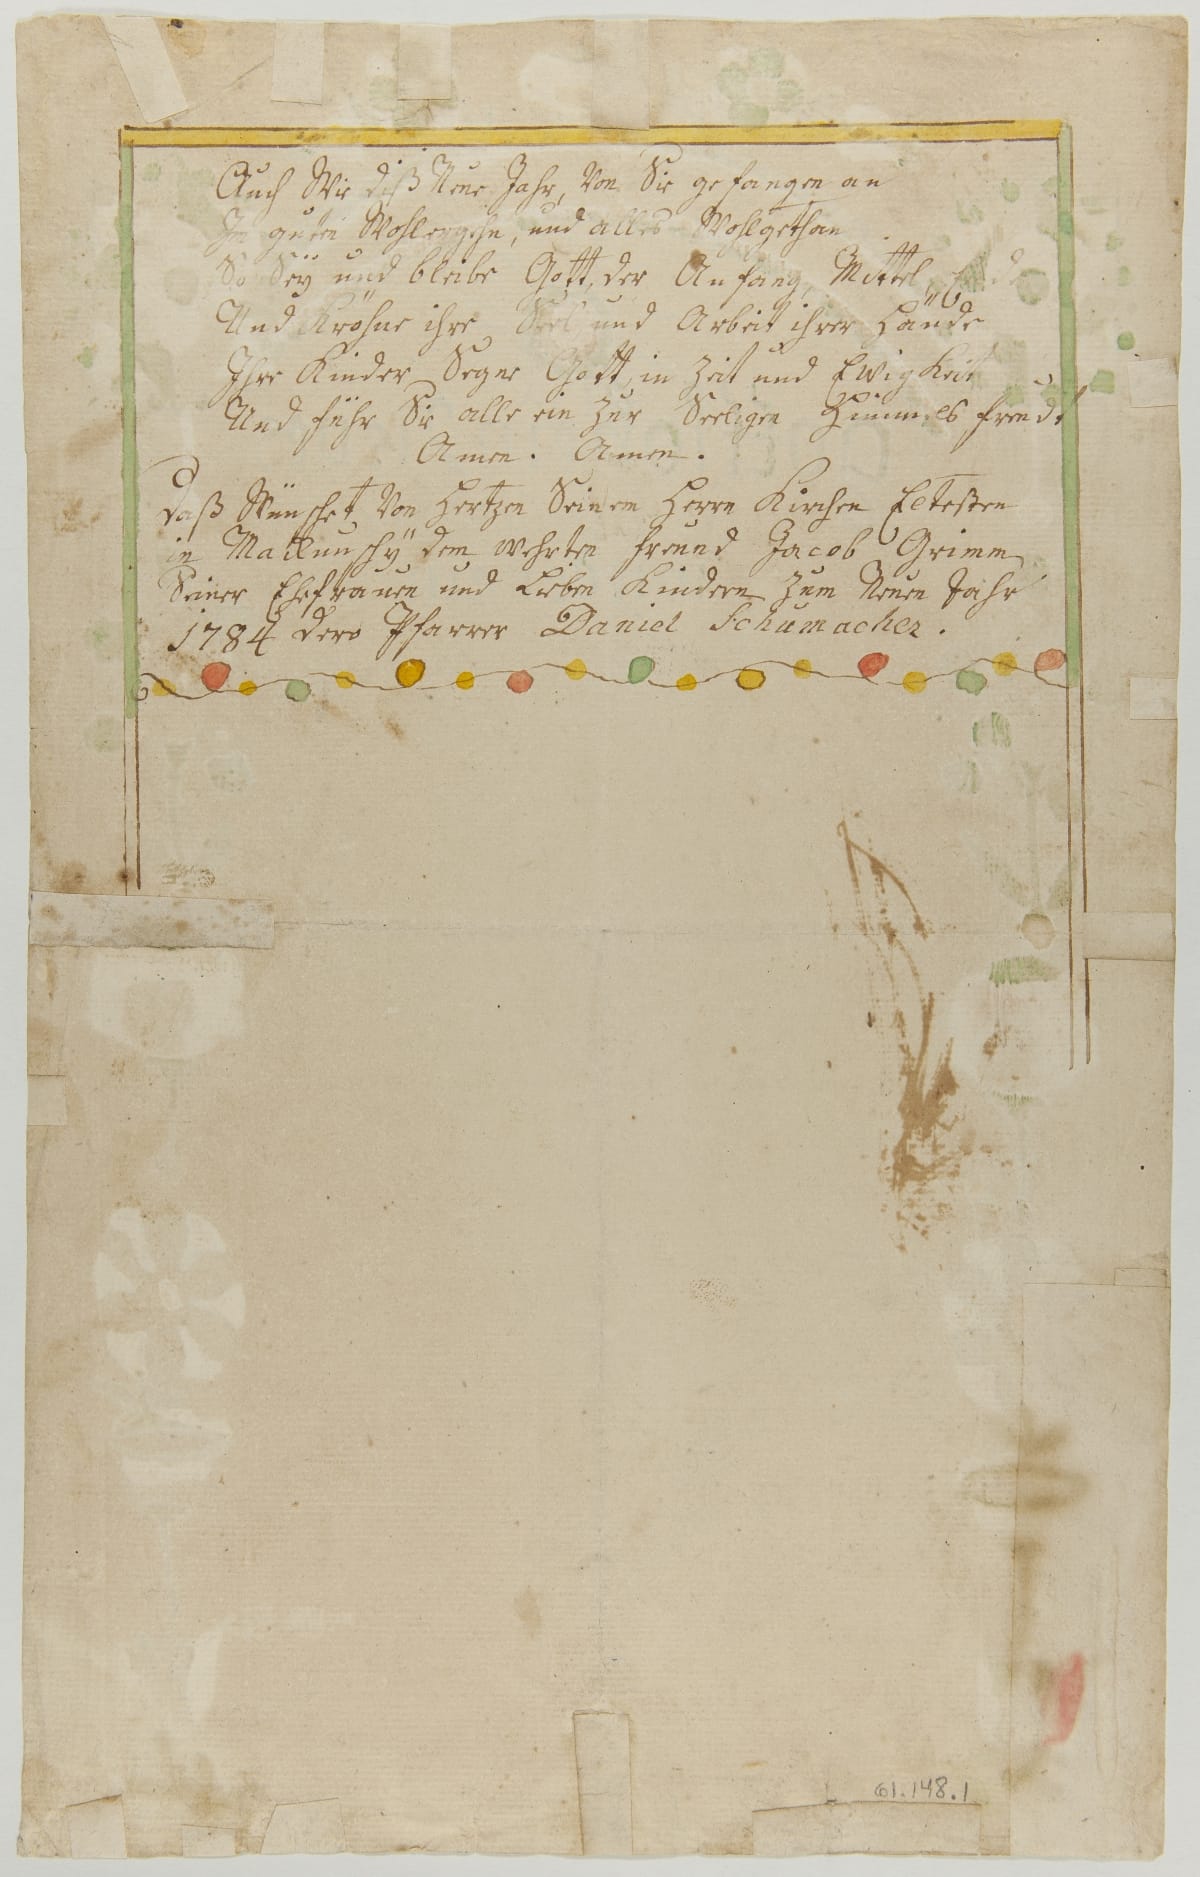 Auch Wie diß Neue Jahr, Von Sie gefangen an
In guten Wohlergehn, und alles Wohlgethan
So Seÿ und bleibe Gott, der Anfang, Mittel, Ende
Und Kröhne ihre Seel und Arbeit ihrer Hände
Ihre Kinder Segne Gott, in Zeit und Ewigkeit
Und führ Sie alle ein zur Seeligen Himmels freude
Amen. Amen.
Daß Wünschet Von Hertzen Seinem Herrn Kirchen Eltesten
in Mackunschÿ dem wehrten freund Jacob Grimm
Seiner Ehefrauen und Lieben Kindern zum Neuen Jahr
1784 dero Pfarrer Daniel Schumacher.
61.148.1